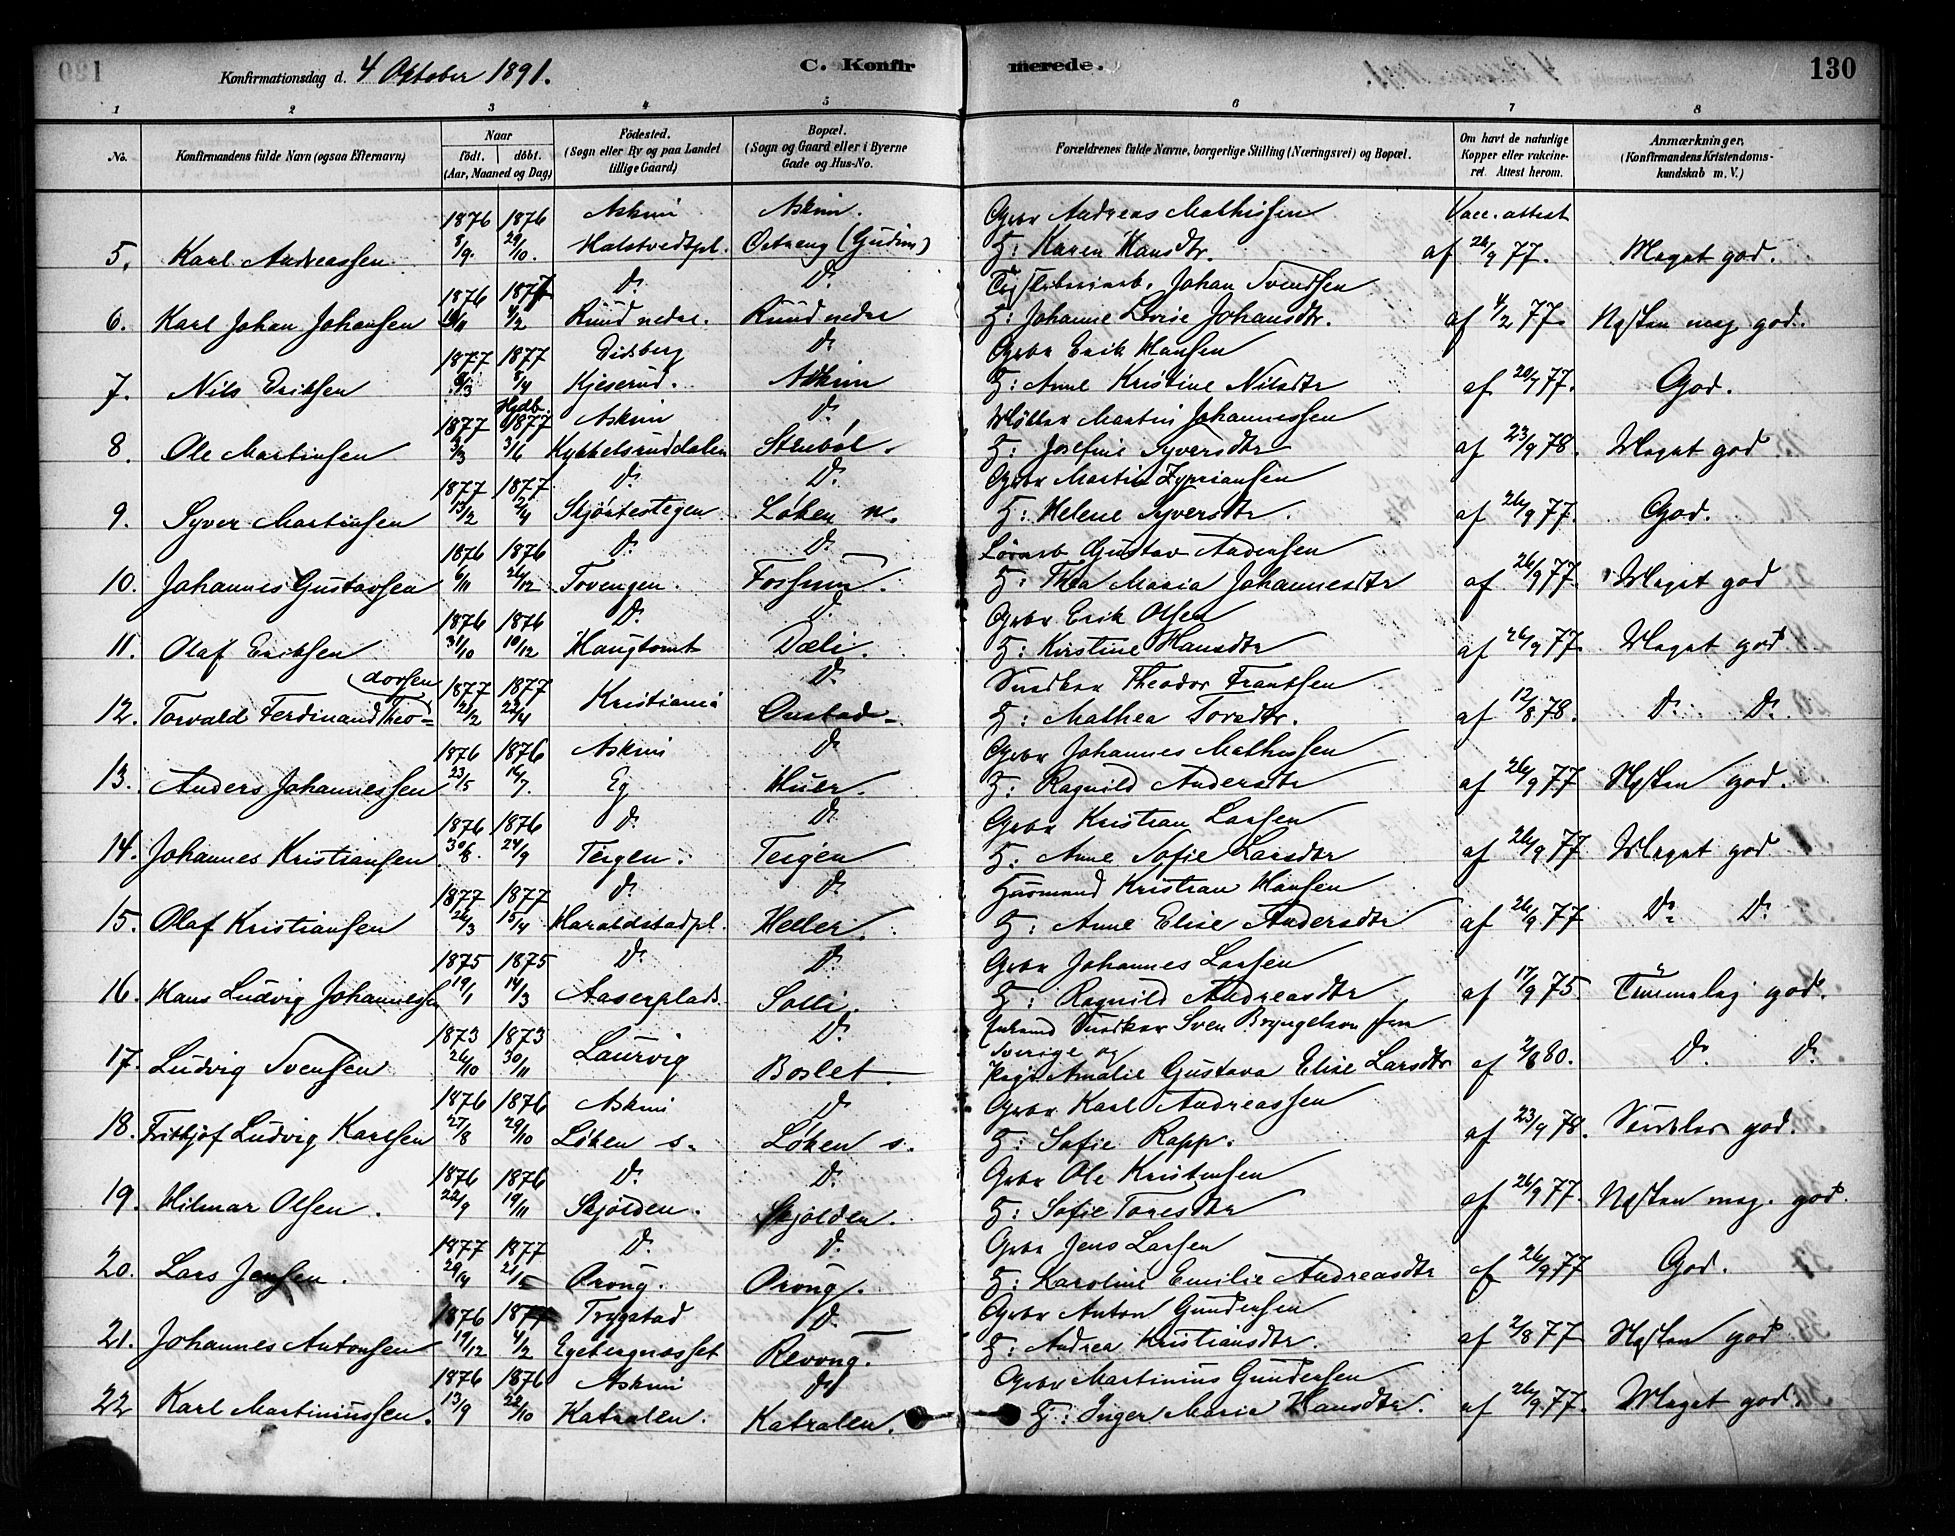 Konfirmationsdag d. 4 Oktober 1891.
C. Konfirmerede.
130
1 2 3 4 5 6 7 8
No.
Konfirmandens fulde Navn (ogsaa Efternavn)
Naar
födt. döbt.
(Aar, Maaned og Dag)
Födested.
(Sogn eller By og paa Landet
tillige Gaard)
Bopæl.
(Sogn og Gaard eller i Byerne
Gade og Hus-No.
Forældrenes fulde Navne, borgerlige Stilling (Næringsvei) og Bopæl.
Om havt de naturlige
Kopper eller vakcine-
ret. Attest herom.
Anmærkninger.
(Konfirmandens Kristendoms-
kundskab m. V.)
1876 1876 Askim Askim. Grbr Andreas Mathissen Vacc. attest
5. Karl Andreassen 8/9. 29/10. Halstvedtpl. Østreng (Gudim) H: Karen Hansdtr. af 26/9 77. Meget god.
1876 1877 Do Do Johan Svendsen
6. Karl Johan Johansen 4/2 Ruud nedre. Ruud nedre H: Johanne Lovise Johansdtr. af 4/2 77. Næsten meg god.
1877 1877 Eidsberg Do Grbr Erik Hansen
7. Nils Eriksen 8/4 Kjeserud. Askim H: Anne Kristine Nilsdtr af 20/7 77. God.
Hjdb.
1877 1877 Askim Do Møller Martin Johannessen
8. Ole Martinsen 3/3 3/6 Kykkelsruddalen Stenbøl. H: Josefine Syversdtr af 23/9 78. Meget god
1877 1877 Do Do Grbr Martin Zypriansen
9. Syver Martinsen 13/2 2/4 Skjørtestegen Løken n. H: Helene Syversdtr. af 26/9 77. God.
1876 1876 Do Do Gustav
10. Johannes Gustavsen 6/11 26/12 Tovengen. Fossum. H: Thea Maria Johannesdtr af 26/9 77. Meget god
1876 1876 Do Do Grbr Erik Olsen
11. Olaf Eriksen 31/10 10/12 Haugtomt Dæli. H: Kirstine Hansdtr af 26/9 77. Meget god
dorsen 1877 1877 Kristiania Do Snedker Theodor Frantsen
12. Torvald Ferdinand Theo- 21/2 22/4 Onstad. H: Mathea Toresdtr. af 12/8 78. Do Do
1876 1876 Askim Do Grbr Johannes Mathissen
13. Anders Johannessen 23/5 16/7. Eg Huer. H: Ragnild Andersdtr af 26/9 77 Næsten god.
1876 1876 Do Do Grbr Kristian Larsen
14. Johannes Kristiansen 30/8. 24/9 Teigen. Teigen H: Anne Sofie Larsdtr af 26/9 77 Meget god
1877 1877 Do Do Husmand Kristian Hansen
15. Olaf Kristiansen 26/3 15/4 Haraldstadpl. Heller. H: Anne Elise Andersdtr af 26/9 77 Do Do
1875 1875 Do Do Grbr Johannes Larsen
16. Hans Ludvig Johannessen 19/1 14/3 Aaserplads Solli. H: Ragnild Andreasdtr af 17/9 75. Temmelig god.
1873 1873 Laurvig Do Snedker Sven Bryngelson fra
Sverige og
17. Ludvig Svensen 26/10 30/11 Boslet. Pige Amalie Gustava Elise Larsdtr af 2/8 80. Do Do
1876 1876 Askim Do Grbr Karl Andreassen
18. Frithjof Ludvig Karlsen 27/8 29/10 Løken s. Løken s. H: Sofie Rapp. af 23/9 78. Særdeles god.
1876 1876 Do Do Grbr Ole Kristensen
19. Hilmar Olsen. 22/9 19/11 Skjølden. Skjolden. H: Sofie Toresdtr af 26/9 77. Næsten meg. god.
1877 1877 Do Do Grbr Jens Larsen
20. Lars Jensen. 29/4 21/5 Prong. Prong. H: Karoline Emilie Andreasdtr af 26/9 77 God.
1876 1877 Trygstad Do Grbr Anton Gundersen
21. Johannes Antonsen 19/12 4/2 Egebergnæsset Revoug. H: Andrea Kristiansdtr. af 2/8 77 Næsten god
1876 1876 Askim Do Grbr Martinius Gundersen
22 Karl Martiniussen. 13/9 22/10 Katralen. Katralen. H: Inger Marie Hansdtr. af 26/9 77. Meget god.